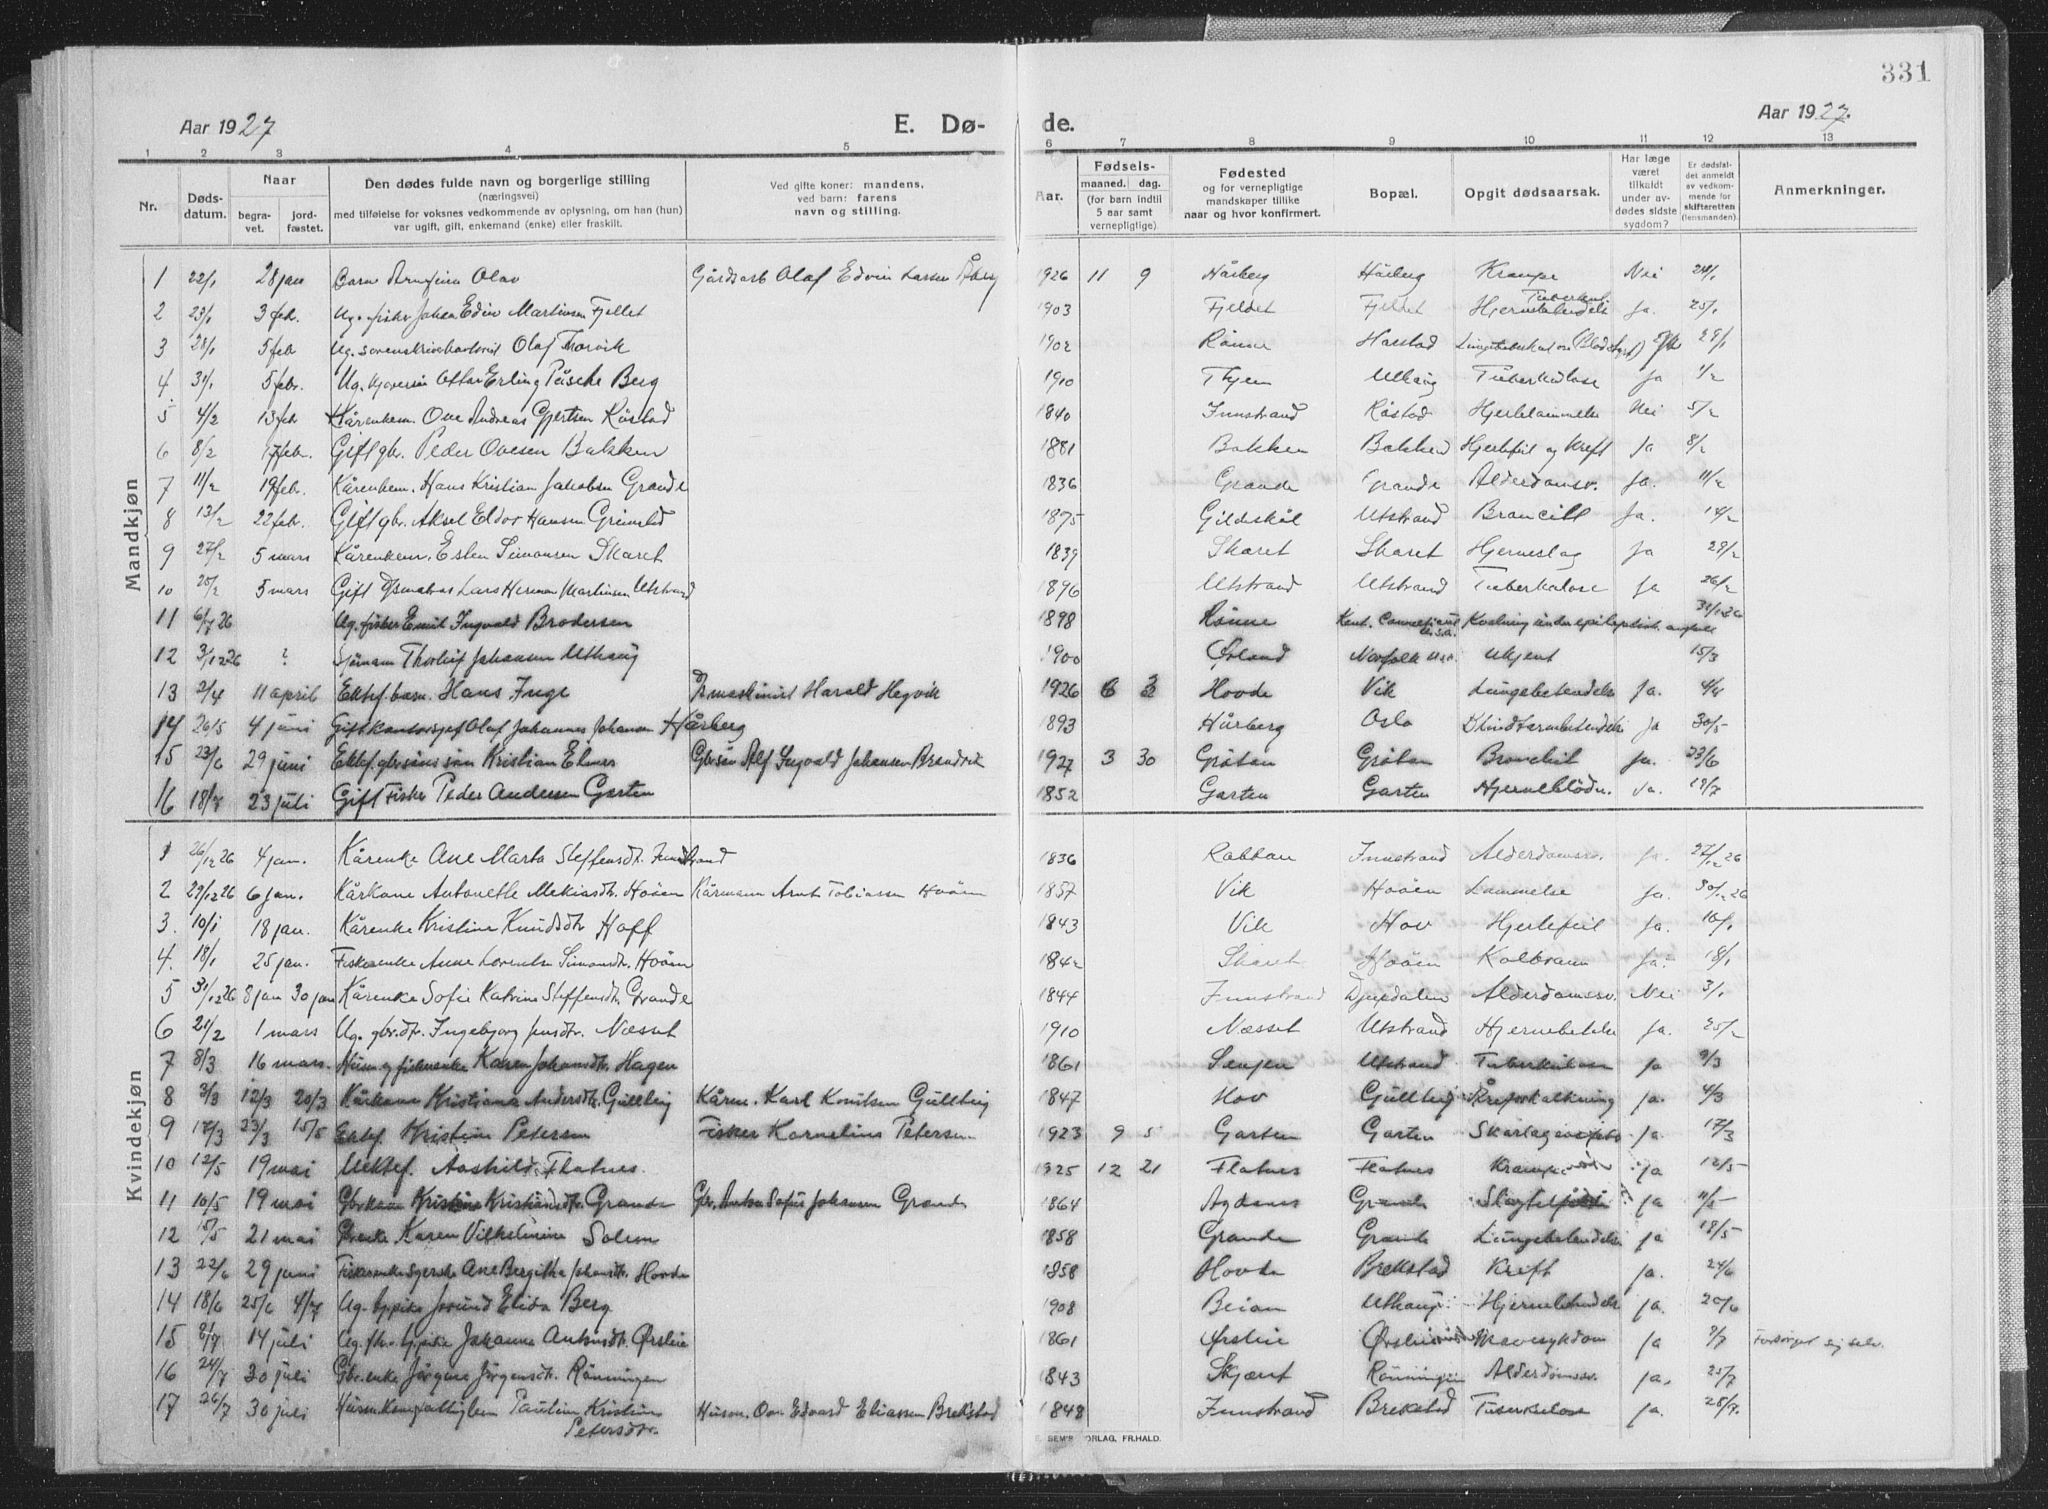 331
Aar 1927
E. Dø-
de.
Aar 1927.
1 2 3 4 5 6 7 8 9 10 11 12 13
Nr.
Døds-
datum.
Naar
begra-
vet.
jord-
fæstet.
Den dødes fulde navn og borgerlige stilling
(næringsvei)
med tilføielse for voksnes vedkommende av oplysning, om han (hun)
var ugift, gift, enkemand (enke) eller fraskilt.
Ved gifte koner: mandens,
ved barn: farens
navn og stilling.
Aar.
Fødsels-
maaned. dag.
(for barn indtil
5 aar samt
vernepligtige)
Fødested
og for vernepligtige
mandskaper tillike
naar og hvor konfirmert.
Bopæl.
Opgit dødsaarsak.
Har læge
været
tilkaldt
under av-
dødes sidste
sygdom?
Er dødsfal-
det anmeldt
av vedkom-
mende for
skifteretten
(lensmanden).
Anmerkninger.
Mandkjøn
1 22/1 28 jan Olav Gårdsarb Olaf Edvin Larsen 1926 11 9 Hårberg Hårberg Krampe Nei 24/1
2 23/1 3 feb. Ug. fisker Johan Edin Martinsen Fjellet 1903 Fjeldet Fjeldet Ja. 25/1
3 28/1 5 feb Ug. Olaf Thorvik 1902 Rønne Harstad 29/1
4 31/1 5 feb. Ug. Ottar Erling Påsche Berg 1910 Uthaug Tuberkulose Ja 1/2
5 4/2 13 feb Kårenkem. Ove Andreas Gjertsen Røstad 1840 Innstrand Røstad Hjertelammelse Nei 5/2
6 8/2 17 feb. Gift gbr. Peder Ovesen Bakken 1881 Bakken Bakken Hjertefeil og Kreft Ja 8/2
7 11/2 19 feb. Kårenkem. Hans Kristian Jakobsen Grande 1836 Grande Grande Alderdomsv. Ja. 11/2
8 13/2 22 feb. Gift gbr. Aksel Eldor Hansen Grimstad 1875 Gildeskål Utstrand Ja. 14/2
9 27/2 5 mars Kårenkem. Esten Simonsen Skaret 1839 Skaret Skaret Hjerneslag Ja 29/2
10 25/2 5 mars Gift Lars Herman Martinsen Utstrand 1896 Utstrand Utstrand Tuberkulose Ja 26/2
11 6/7 26 Ug. fisker Emil Ingvald Brodersen 1898 Rønne Kent. Kvælning under epileptisk anfall
12 3/12 26 ? Sjømann Thorleif Johansen Uthaug 1900 Ørland Norfolk Ukjent 15/3
13 2/4 11 april Ektef. barn. Hans Inge maskinist Harald Hegvik 1926 6 3 Hovde Vik Lungebetendelse Ja. 4/4
14 26/5 4 juni Gift kontorsjef Olaf Johannes Johansen Hårberg 1893 Hårberg Oslo Blindtarmbetendelse Ja 30/5
15 23/6 29 juni Ektef. gbrsøns søn Kristian Elmer Gbrsøn Alf Ingvald Johansen 1927 3 30 Grøtan Grøtan Bronchit Ja. 23/6
16 18/7 23 juli Gift Fisker Peder Andersen Garten 1852 Garten Garten Hjerneblødn. Ja. 19/7
Kvindekjøn
1 26/12 26 4 jan. Kårenke Ane Marta Steffensdtr. Innstrand 1836 Rabban Innstrand Alderdomssv. Ja. 27/12 26
2 29/12 26 6 jan. Kårkone Antonette Mekiasdtr. Hoøen Kårmann Arnt Tobiassen Hoøen 1857 Vik Hoøen Lammelse Ja. 30/12 26
3. 10/1 18 jan. Kårenke Kristine Knudsdtr Hoff 1843 Vik Hov Hjertefeil Ja. 10/1
4. 18/1 25 jan. Fiskerenke Anne Lorentse Simonsdtr. Hoøen 1842 Skaret Hoøen Koldbrann Ja. 18/1
5 31/12 26 8 jan 30 jan Kårenke Sofie Katrine Steffensdtr Grande 1844 Innstrand Djupdalen Alderdomssv. Nei 3/1
6 21/2 1 mars Ug. gbr.dtr. Ingeborg Jensdtr. Næsset 1910 Næsset Utstrand Ja. 25/2
7 8/3 16 mars. Karen Johansdtr. Hagen 1861 Senjen Utstrand Tuberkulose Ja 9/3
8 3/3 12/3 20/3 Kårkone Kristiana Andersdtr. Gullteig Kårm. Karl Knutsen Gullteig 1847 Hov Gullteig Åreforkalkning Ja. 4/3
9 17/3 23/3 15/5 Ektef. Kristine Petersen Fisker Kornelius Petersen 1923 9 5 Garten Garten Ja. 17/3
10 12/5 19 mai Uektef. Aashild Flatnes. 1925 12 21 Flatnes Flatnes Krampe Ja 12/5
11 10/5 19 mai Gbrkone Kristine Kristiansdtr. Grande Gbr. Anton Sofus Johansen Grande 1864 Agdenes Grande Ja 11/5
12 15/5 21 mai Karen Vilhelmine Solem 1858 Grande Grande Lungebetendelse Ja 18/5
13 22/6 29 juni Ane Bergitha Johansdtr. Hovde 1858 Hovde Brekstad Kreft Ja. 24/6
14 18/6 25/6 4/7 Ug. Elida Berg 1908 Beian Uthaug Hjernebetendelse Ja. 20/6
15 14 juli Ug. Johanna Antonsdtr. Ørsleie 1861 Ørsleie Mavesykdom Ja 9/7 Forsørget sig selv.
16 24/7 30 juli Gbr.enke Jørgine Jørgensdtr. Rønningen 1843 Skjørt Rønningen Alderdomssv. Ja. 25/7
17 26/7 30 juli Pauline Kristine Petersdtr. Husm. Ove Edvard Eliassen Brekstad 1848 Innstrand Brekstad Tuberkulose Ja. 28/7.
SEM'S FORLAG, FR.HALD.